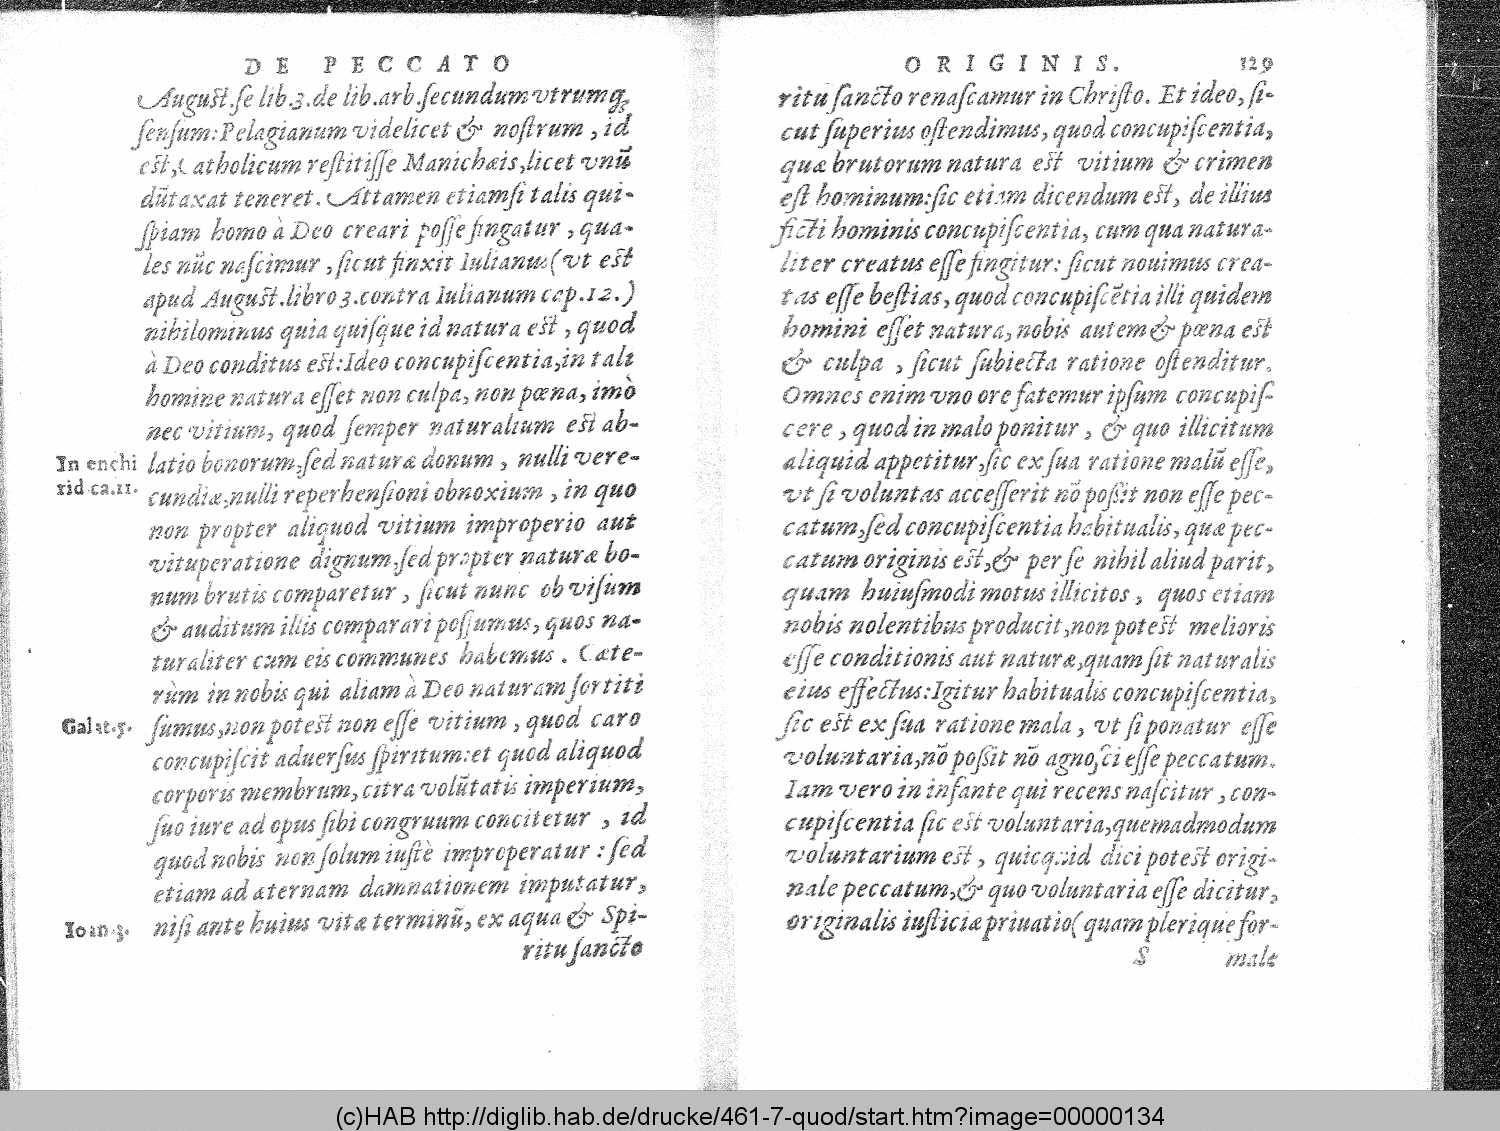 DE PECCATO
Auguſt. ſe lib.3. de lib. arb. ſecundum utrumq;
ſenſum: Pelagianum videlicet & noſtrum, id
eſt, Catholicum reſtitiſſe Manichæis, licet vnũ
dũtaxat teneret. Attamen etiamſi talis qui-
ſpiam homo à Deo creari poſſe fingatur, qua-
les nũc naſcimur, ſicut finxit Iulianus (vt eſt
apud Auguſt. libro 3. contra Iulianum cap.12.)
nihilominus quia quiſque id natura eſt, quod
à Deo conditus eſt: Ideo concupiſcentia, in tali
homine natura eſſet non culpa, non pœna, imò
nec vitium, quod ſemper naturalium eſt ab-
In enchi
latio bonorum, ſed naturæ donum, nulli vere-
rid.ca.11.
cundiæ, nulli reperhenſioni obnoxium, in quo
non propter aliquod vitium improperio aut
vituperatione dignum, ſed propter naturæ bo-
num brutis comparetur, ſicut nunc ob viſum
& auditum illis comparari poſſumus, quos na-
turaliter cum eis communes habemus. Cæte-
rùm in nobis qui aliam à Deo naturam ſortiti
Galat.5.
ſumus, non poteſt non eſſe vitium, quod caro
concupiſcit aduerſus ſpiritum: et quod aliquod
corporis membrum, citra volũtatis imperium,
ſuo iure ad opus ſibi congruum concitetur, id
quod nobis non ſolum iuſtè improperatur: ſed
etiam ad æternam damnationem imputatur,
Ioan.3.
niſi ante huius vitæ terminũ, ex aqua & Spi-
ritu ſancto
ORIGINIS. 129
ritu ſancto renaſcamur in Chriſto. Et ideo, ſi-
cut ſuperius oſtendimus, quod concupiſcentia,
quæ brutorum natura eſt vitium & crimen
eſt hominum: ſic etiam dicendum eſt, de illius
ficti hominis concupiſcentia, cum qua natura-
liter creatus eſſe fingitur: ſicut nouimus crea-
tas eſſe beſtias, quod concupiſcẽtia illi quidem
homini eſſet natura, nobis autem & pœna eſt
& culpa, ſicut ſubiecta ratione oſtenditur.
Omnes enim vno ore fatemur ipſum concupiſ-
cere, quod in malo ponitur, & quo illicitum
aliquid appetitur, ſic ex ſua ratione malũ eſſe,
vt ſi voluntas acceſſerit nõ poſſit non eſſe pec-
catum, ſed concupiſcentia habitualis, quæ pec-
catum originis eſt, & per ſe nihil aliud parit,
quam huiuſmodi motus illicitos, quos etiam
nobis nolentibus producit, non poteſt melioris
eſſe conditionis aut naturæ, quam ſit naturalis
eius effectus: Igitur habitualis concupiſcentia,
ſic eſt ex ſua ratione mala, vt ſi ponatur eſſe
voluntaria, nõ poſſit nõ agnoſci eſſe peccatum.
Iam vero in infante qui recens naſcitur, con-
cupiſcentia ſic eſt voluntaria, quemadmodum
voluntarium eſt, quicquid dici poteſt origi-
nale peccatum, & quo voluntaria eſſe dicitur,
originalis iuſticiæ priuatio (quam plerique for-
S male
(c)HAB http://diglib.hab.de/drucke/461-7-quod/start.htm?image=00000134